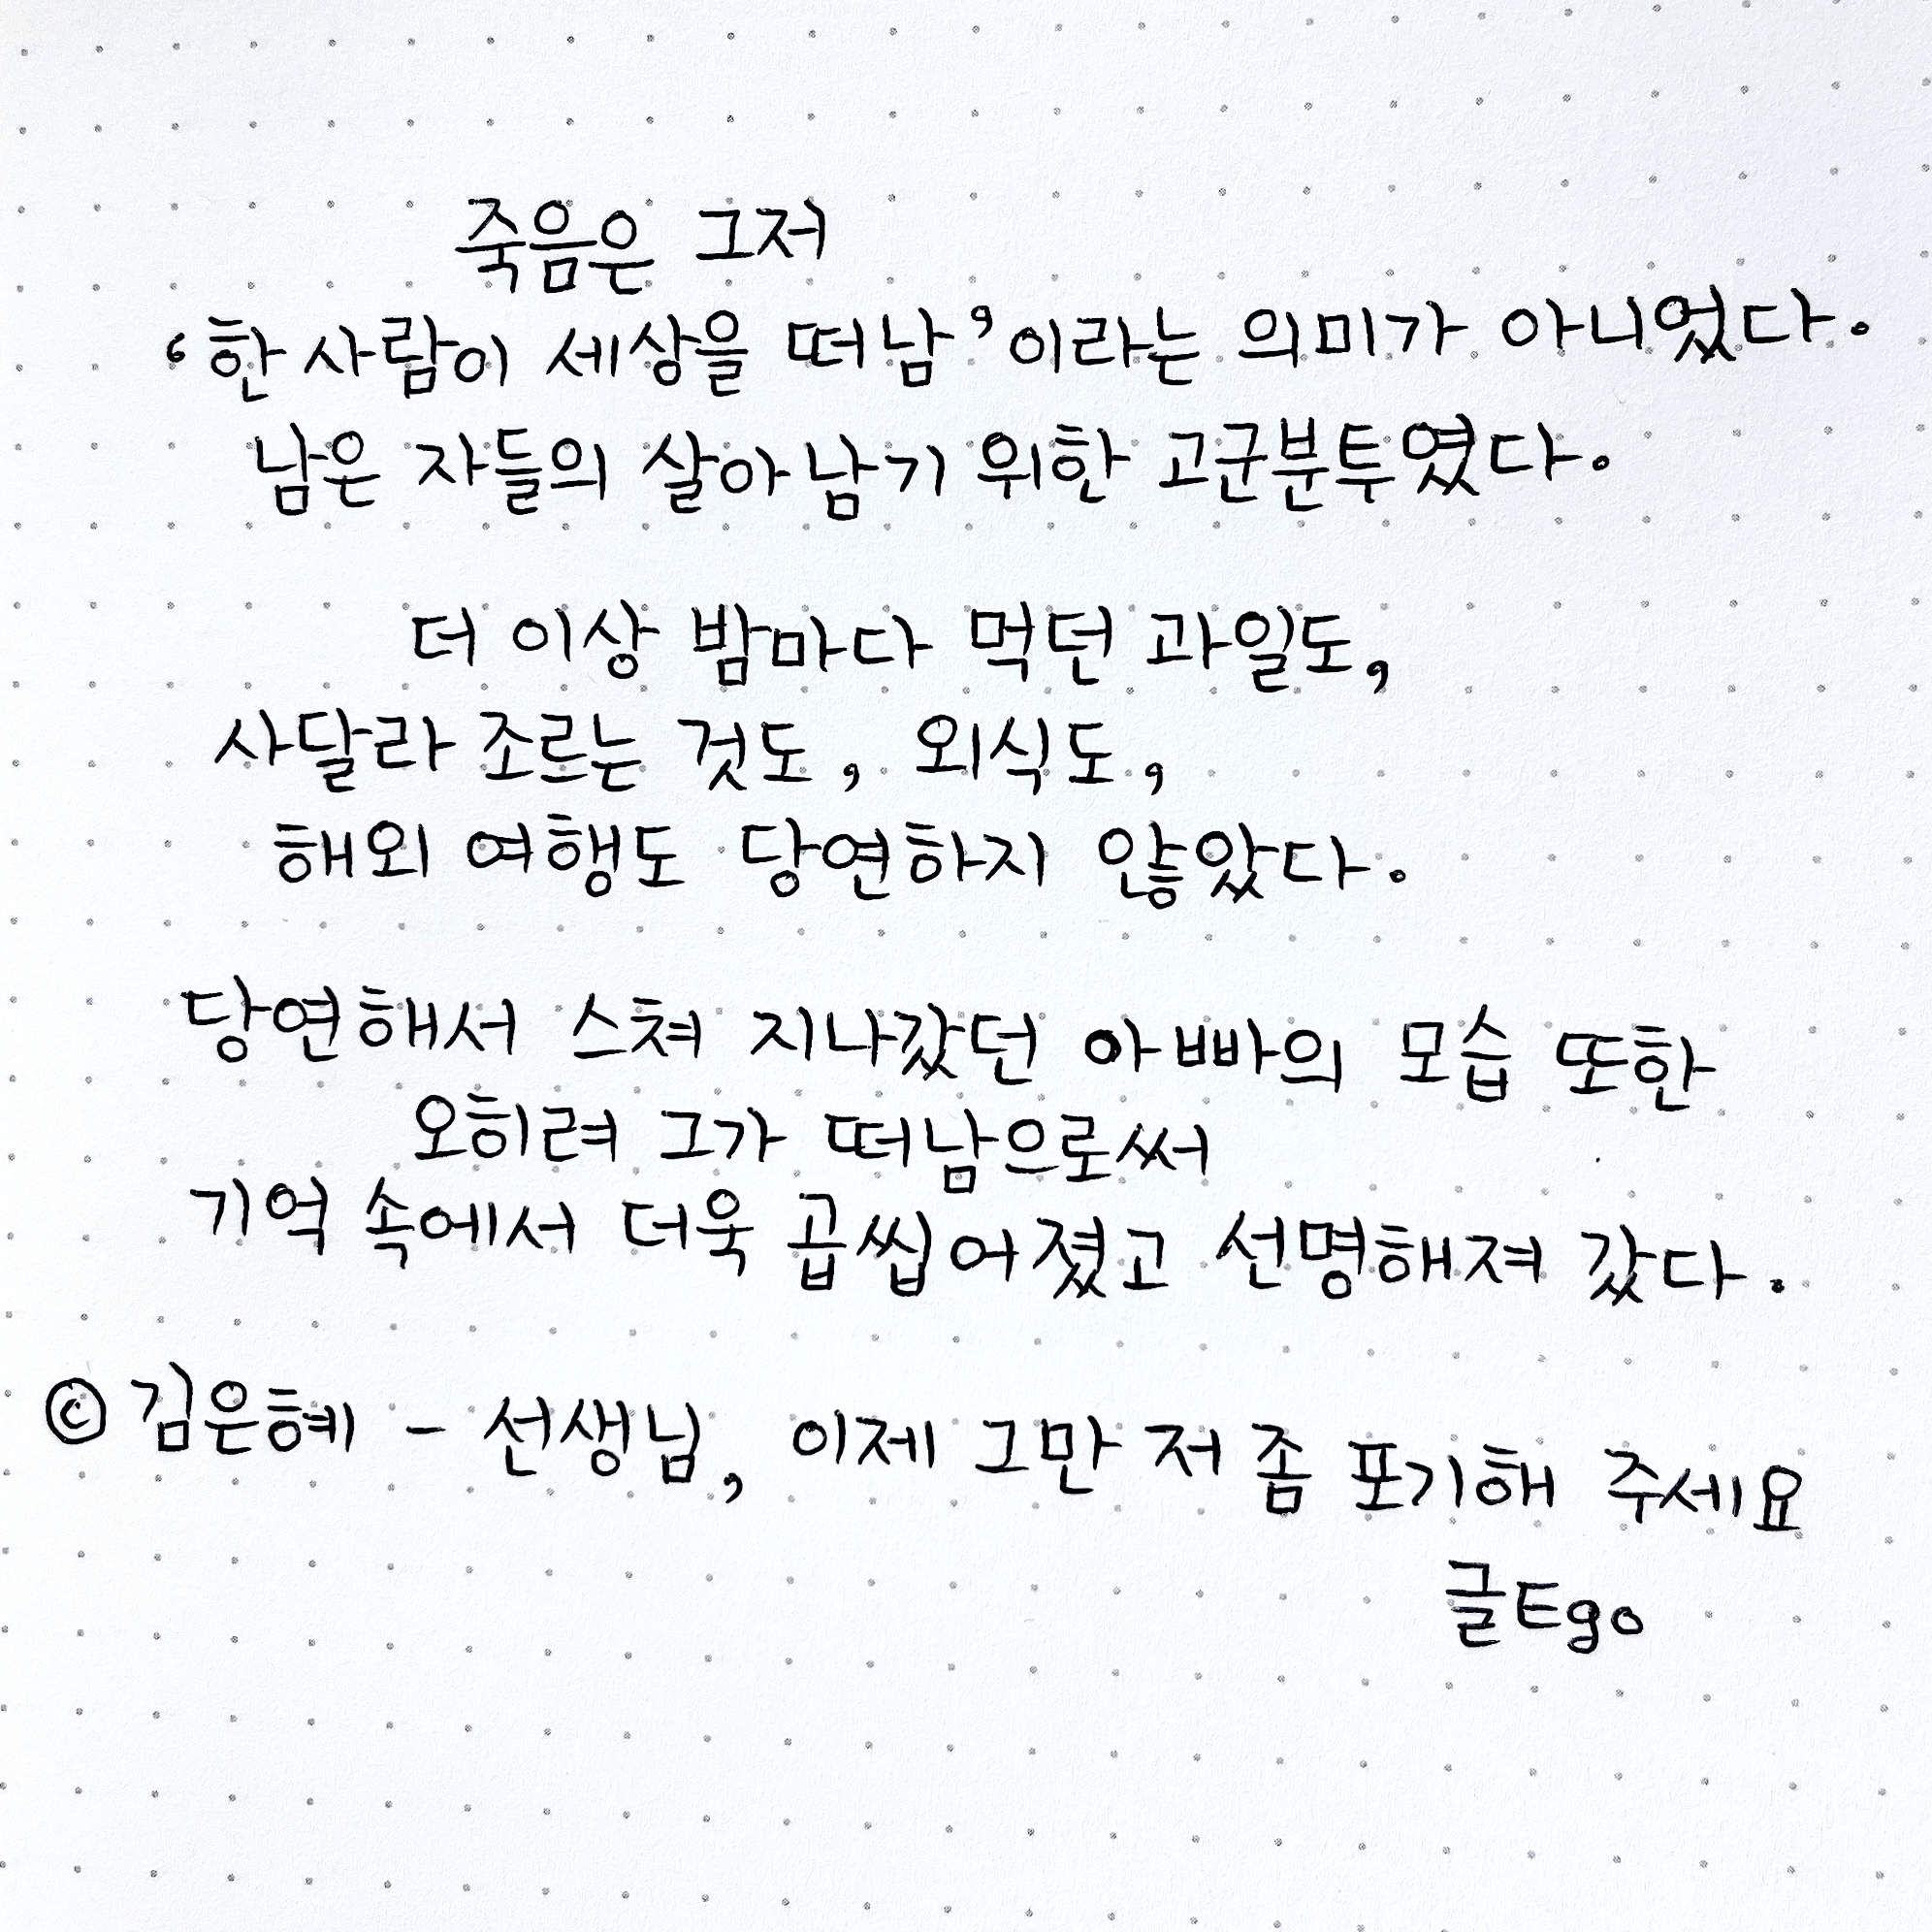 죽음은 그저
‘한 사람이 세상을 떠남’이라는 의미가 아니었다.
남은 자들의 살아남기 위한 고군분투였다.
더 이상 밤마다 먹던 과일도,
사달라 조르는 것도, 외식도,
해외 여행도 당연하지 않았다.
당연해서 스쳐 지나갔던 아빠의 모습 또한
오히려 그가 떠남으로써
기억 속에서 더욱 곱씹어졌고 선명해져 갔다.
© 김은혜 - 선생님, 이제 그만 저 좀 포기해 주세요
글Ego